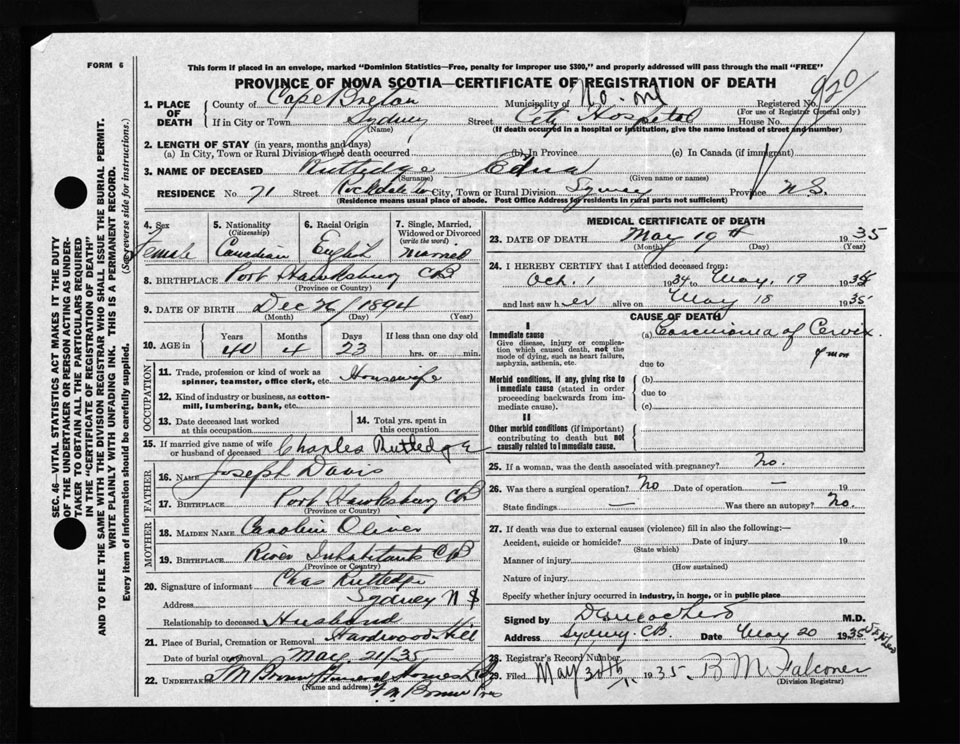 FORM 6
This form if placed in an envelope, marked "Dominion Statistics—Free, penalty for improper use $300," and properly addressed will pass through the mail "FREE"
PROVINCE OF NOVA SCOTIA—CERTIFICATE OF REGISTRATION OF DEATH
1. PLACE OF DEATH
County of Cape Breton Municipality of Registered No. 920
(For use of Registrar General only)
If in City or Town Sydney Street City Hospital House No.
(Name) (If death occurred in a hospital or institution, give the name instead of street and number)
2. LENGTH OF STAY (in years, months and days)
(a) In City, Town or Rural Division where death occurred (b) In Province (c) In Canada (if immigrant)
3. NAME OF DECEASED Rutledge Edna
(Surname) (Given name or names)
RESIDENCE No 71 Street Rockdale City, Town or Rural Division Sydney Province N.S.
(Residence means usual place of abode. Post Office Address for residents in rural parts not sufficient)
4. Sex Female
5. Nationality (Citizenship) Canadian
6. Racial Origin English
7. Single, Married, Widowed or Divorced (write the word) Married
8. BIRTHPLACE Port Hawksbury CB
(Province or Country)
9. DATE OF BIRTH Dec 26 / 1894
(Month) (Day) (Year)
10. AGE in Years 40 Months 4 Days 23 If less than one day old hrs. or min.
OCCUPATION
11. Trade, profession or kind of work as spinner, teamster, office clerk, etc. Housewife
12. Kind of industry or business, as cotton-mill, lumbering, bank, etc.
13. Date deceased last worked at this occupation
14. Total yrs. spent in this occupation
15. If married give name of wife or husband of deceased Charles Rutledge
FATHER
16. NAME Joseph Davis
17. BIRTHPLACE Port Hawksbury CB
(Province or Country)
MOTHER
18. MAIDEN NAME Caroline Oliver
19. BIRTHPLACE River Inhabitants CB
(Province or Country)
20. Signature of informant Chas Rutledge
Address Sydney N S
Relationship to deceased Husband
21. Place of Burial, Cremation or Removal Hardwood Hill
Date of burial or removal May 21/35
22. UNDERTAKER Funeral Home
(Name and address)
MEDICAL CERTIFICATE OF DEATH
23. DATE OF DEATH May 19th 1935
(Month) (Day) (Year)
24. I HEREBY CERTIFY that I attended deceased from:
Oct. 1 1934 to May, 19 1935
and last saw her alive on May 18 1935
CAUSE OF DEATH
I
Immediate cause
Give disease, injury or complication which caused death, not the mode of dying, such as heart failure, asphyxia, asthenia, etc.
(a) Carcinoma of Cervix.
due to
Morbid conditions, if any, giving rise to immediate cause (stated in order proceeding backwards from immediate cause).
(b)
due to
(c)
II
Other morbid conditions (if important) contributing to death but not causally related to immediate cause.
25. If a woman, was the death associated with pregnancy? No.
26. Was there a surgical operation? No Date of operation — 19
State findings — Was there an autopsy? No.
27. If death was due to external causes (violence) fill in also the following:—
Accident, suicide or homicide? Date of injury 19
(State which)
Manner of injury
(How sustained)
Nature of injury
Specify whether injury occurred in industry, in home, or in public place
Signed by M.D.
Address Sydney. CB Date May 20 1935
28. Registrar's Record Number
29. Filed May 30th 1935. Falconer
(Division Registrar)
SEC. 46—VITAL STATISTICS ACT MAKES IT THE DUTY
OF THE UNDERTAKER OR PERSON ACTING AS UNDER-
TAKER TO OBTAIN ALL THE PARTICULARS REQUIRED
IN THE "CERTIFICATE OF REGISTRATION OF DEATH"
AND TO FILE THE SAME WITH THE DIVISION REGISTRAR WHO SHALL ISSUE THE BURIAL PERMIT.
WRITE PLAINLY WITH UNFADING INK. THIS IS A PERMANENT RECORD.
Every item of information should be carefully supplied. (See reverse side for instructions.)